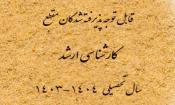 قابل توجه پذیرفته شدگان مقطع
کارشناسی ارشد
سال تحصیلی ۱۴۰۴-۱۴۰۳